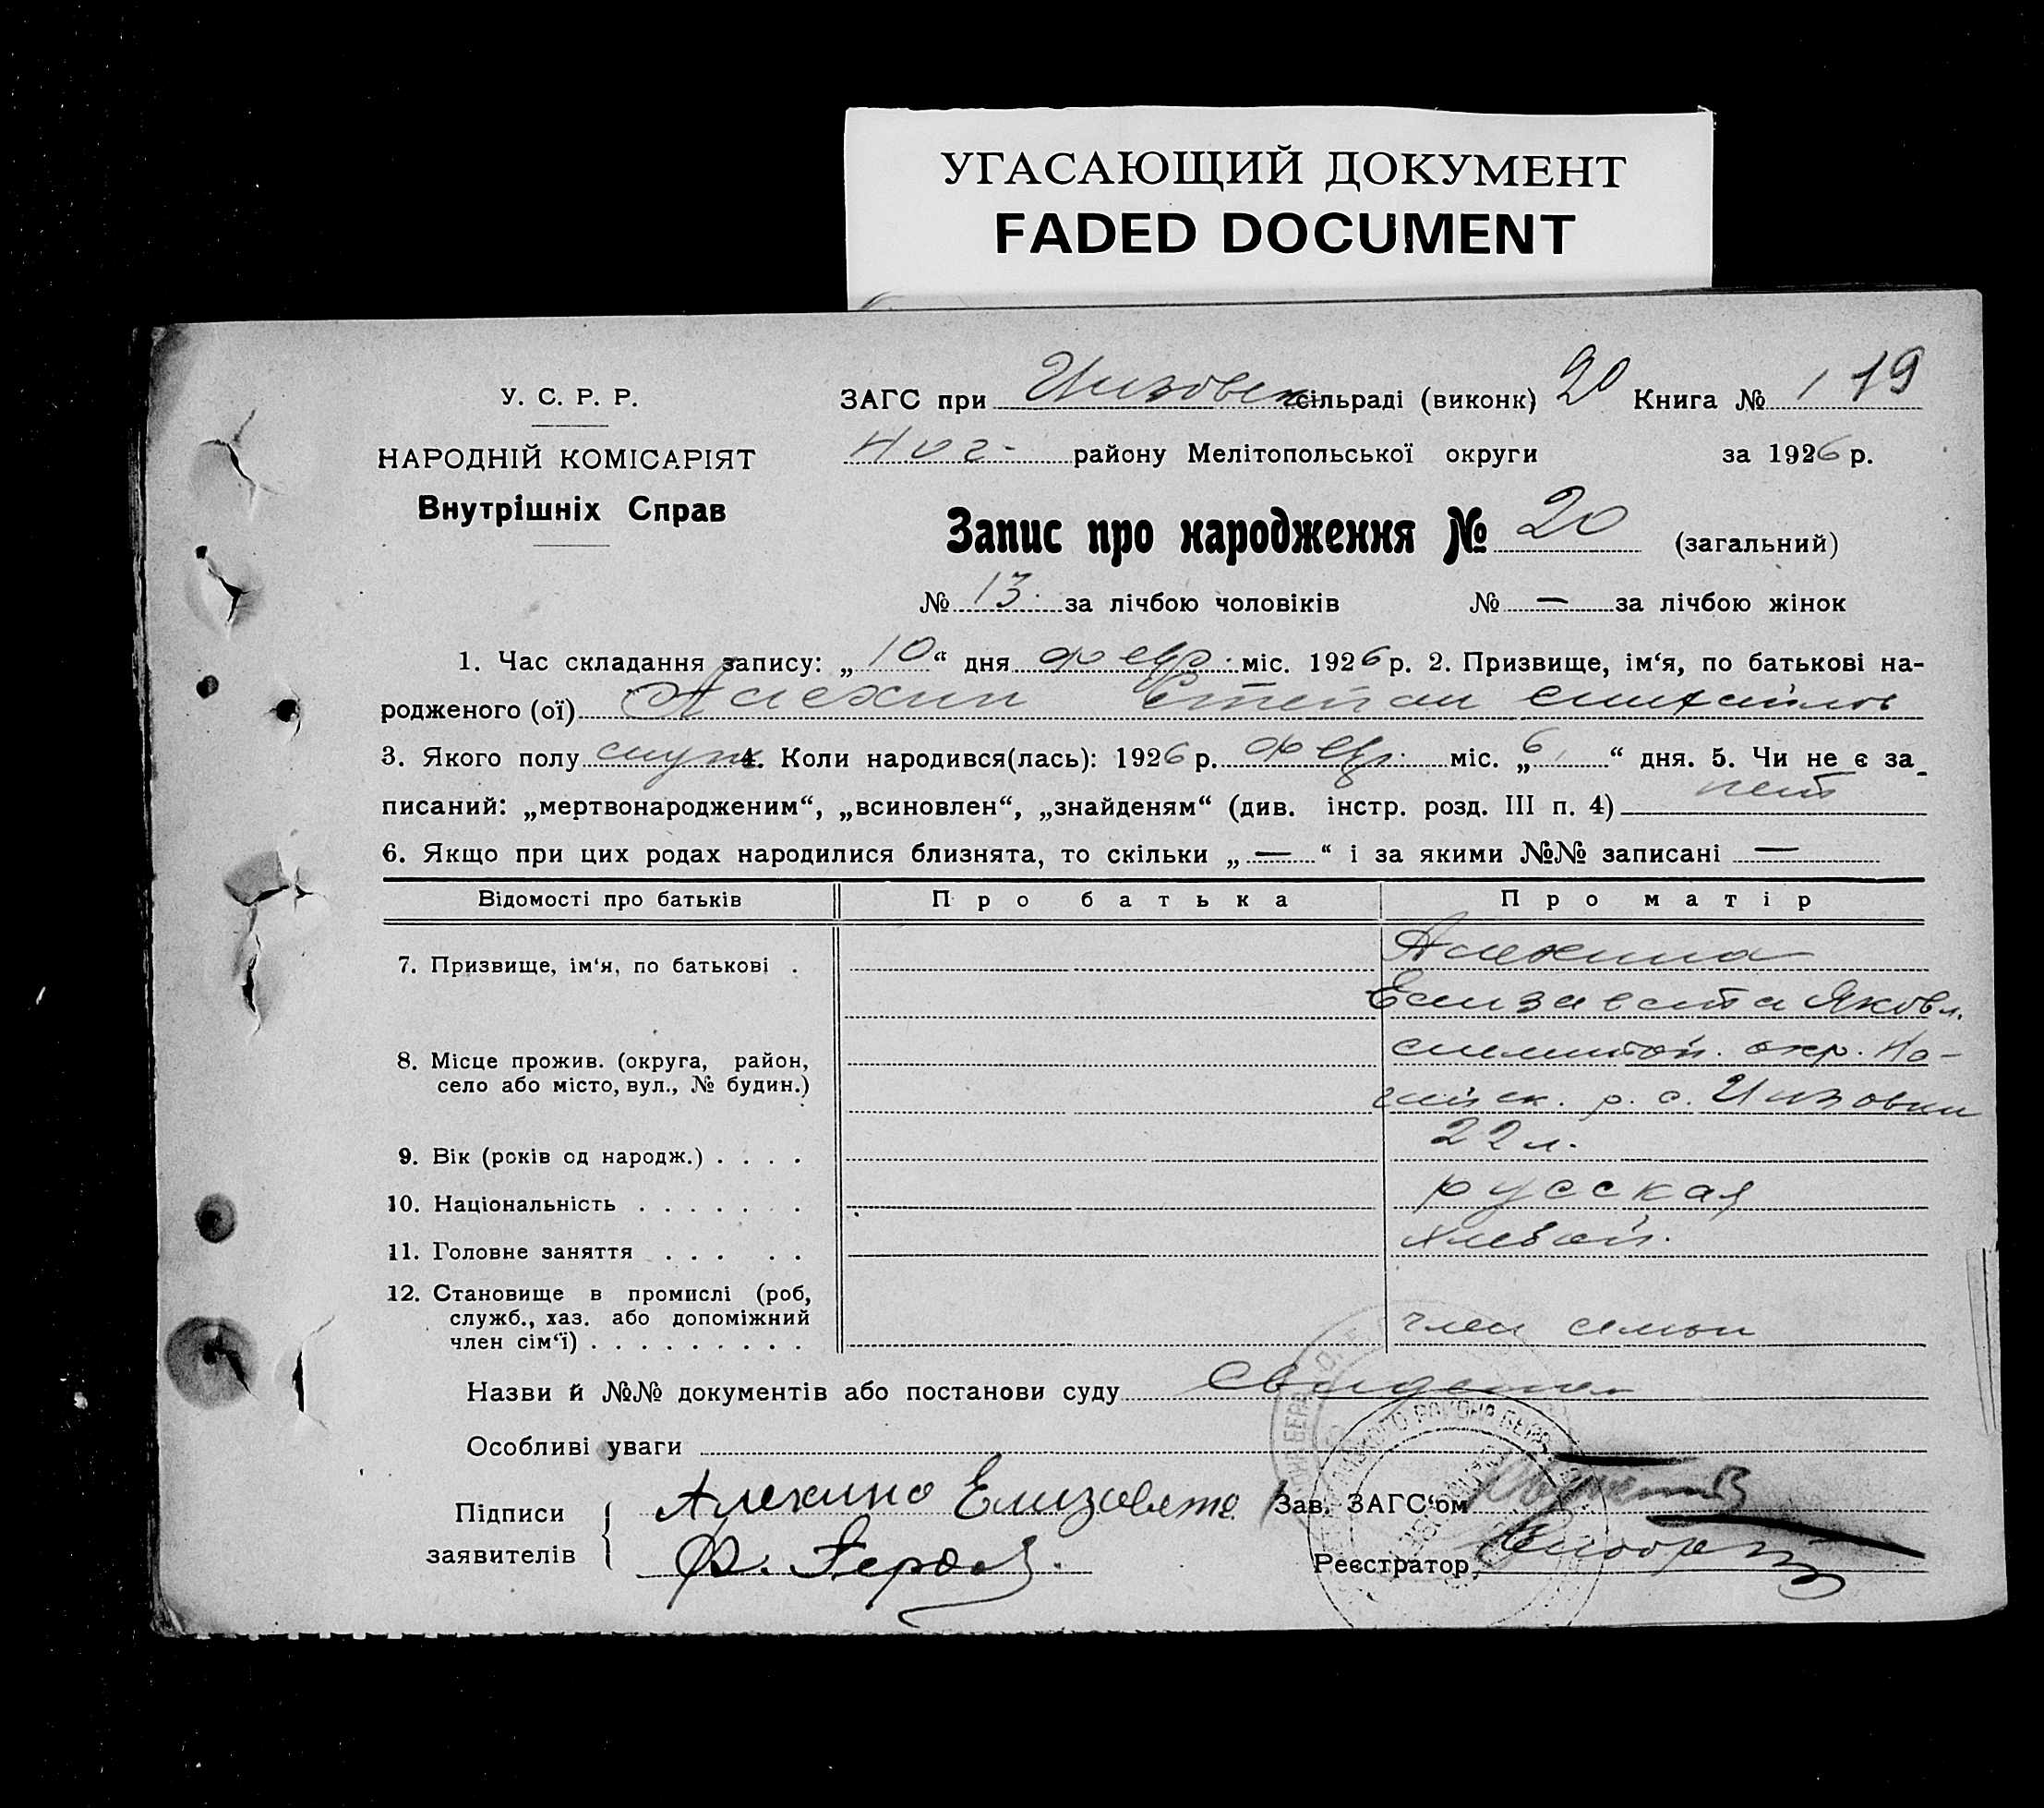 УГАСАЮЩИЙ ДОКУМЕНТ
FADED DOCUMENT
У. С. Р. Р.
НАРОДНІЙ КОМІСАРІЯТ
Внутрішніх Справ
ЗАГС при сільраді (виконк) 20 Книга № 1 19
Ног- району Мелітопольської округи за 1926 р.
Запис про народження № 20 (загальний)
№ 13. за лічбою чоловіків № — за лічбою жінок
1. Час складання запису: „10“ дня февр. міс. 1926 р. 2. Призвище, ім‘я, по батькові на-
родженого (ої) Алехин Степан Михайлов
3. Якого полу муж 4. Коли народився(лась): 1926 р. февр. міс. „6“ дня. 5. Чи не є за-
писаний: „мертвонародженим“, „всиновлен“, „знайденям“ (див. інстр. розд. III п. 4) нет
6. Якщо при цих родах народилися близнята, то скільки „—“ і за якими №№ записані —
Відомості про батьків Про батька Про матір
7. Призвище, ім‘я, по батькові . Алехина
Елизавета Яковл.
8. Місце прожив. (округа, район, село або місто, вул., № будин.) Мелитоп. окр. Но-
гайск. р. с.
9. Вік (років од народж.) . . . . 22 л.
10. Національність . . . . . . . русская
11. Головне заняття . . . . . хлебоп.
12. Становище в промислі (роб, служб., хаз. або допоміжний член сім‘ї) . . . . . . . . . член семьи
Назви й №№ документів або постанови суду
Особливі уваги
Підписи заявителів Алехина Елизавета Зав. ЗАГС‘ом
Ф. Реєстратор